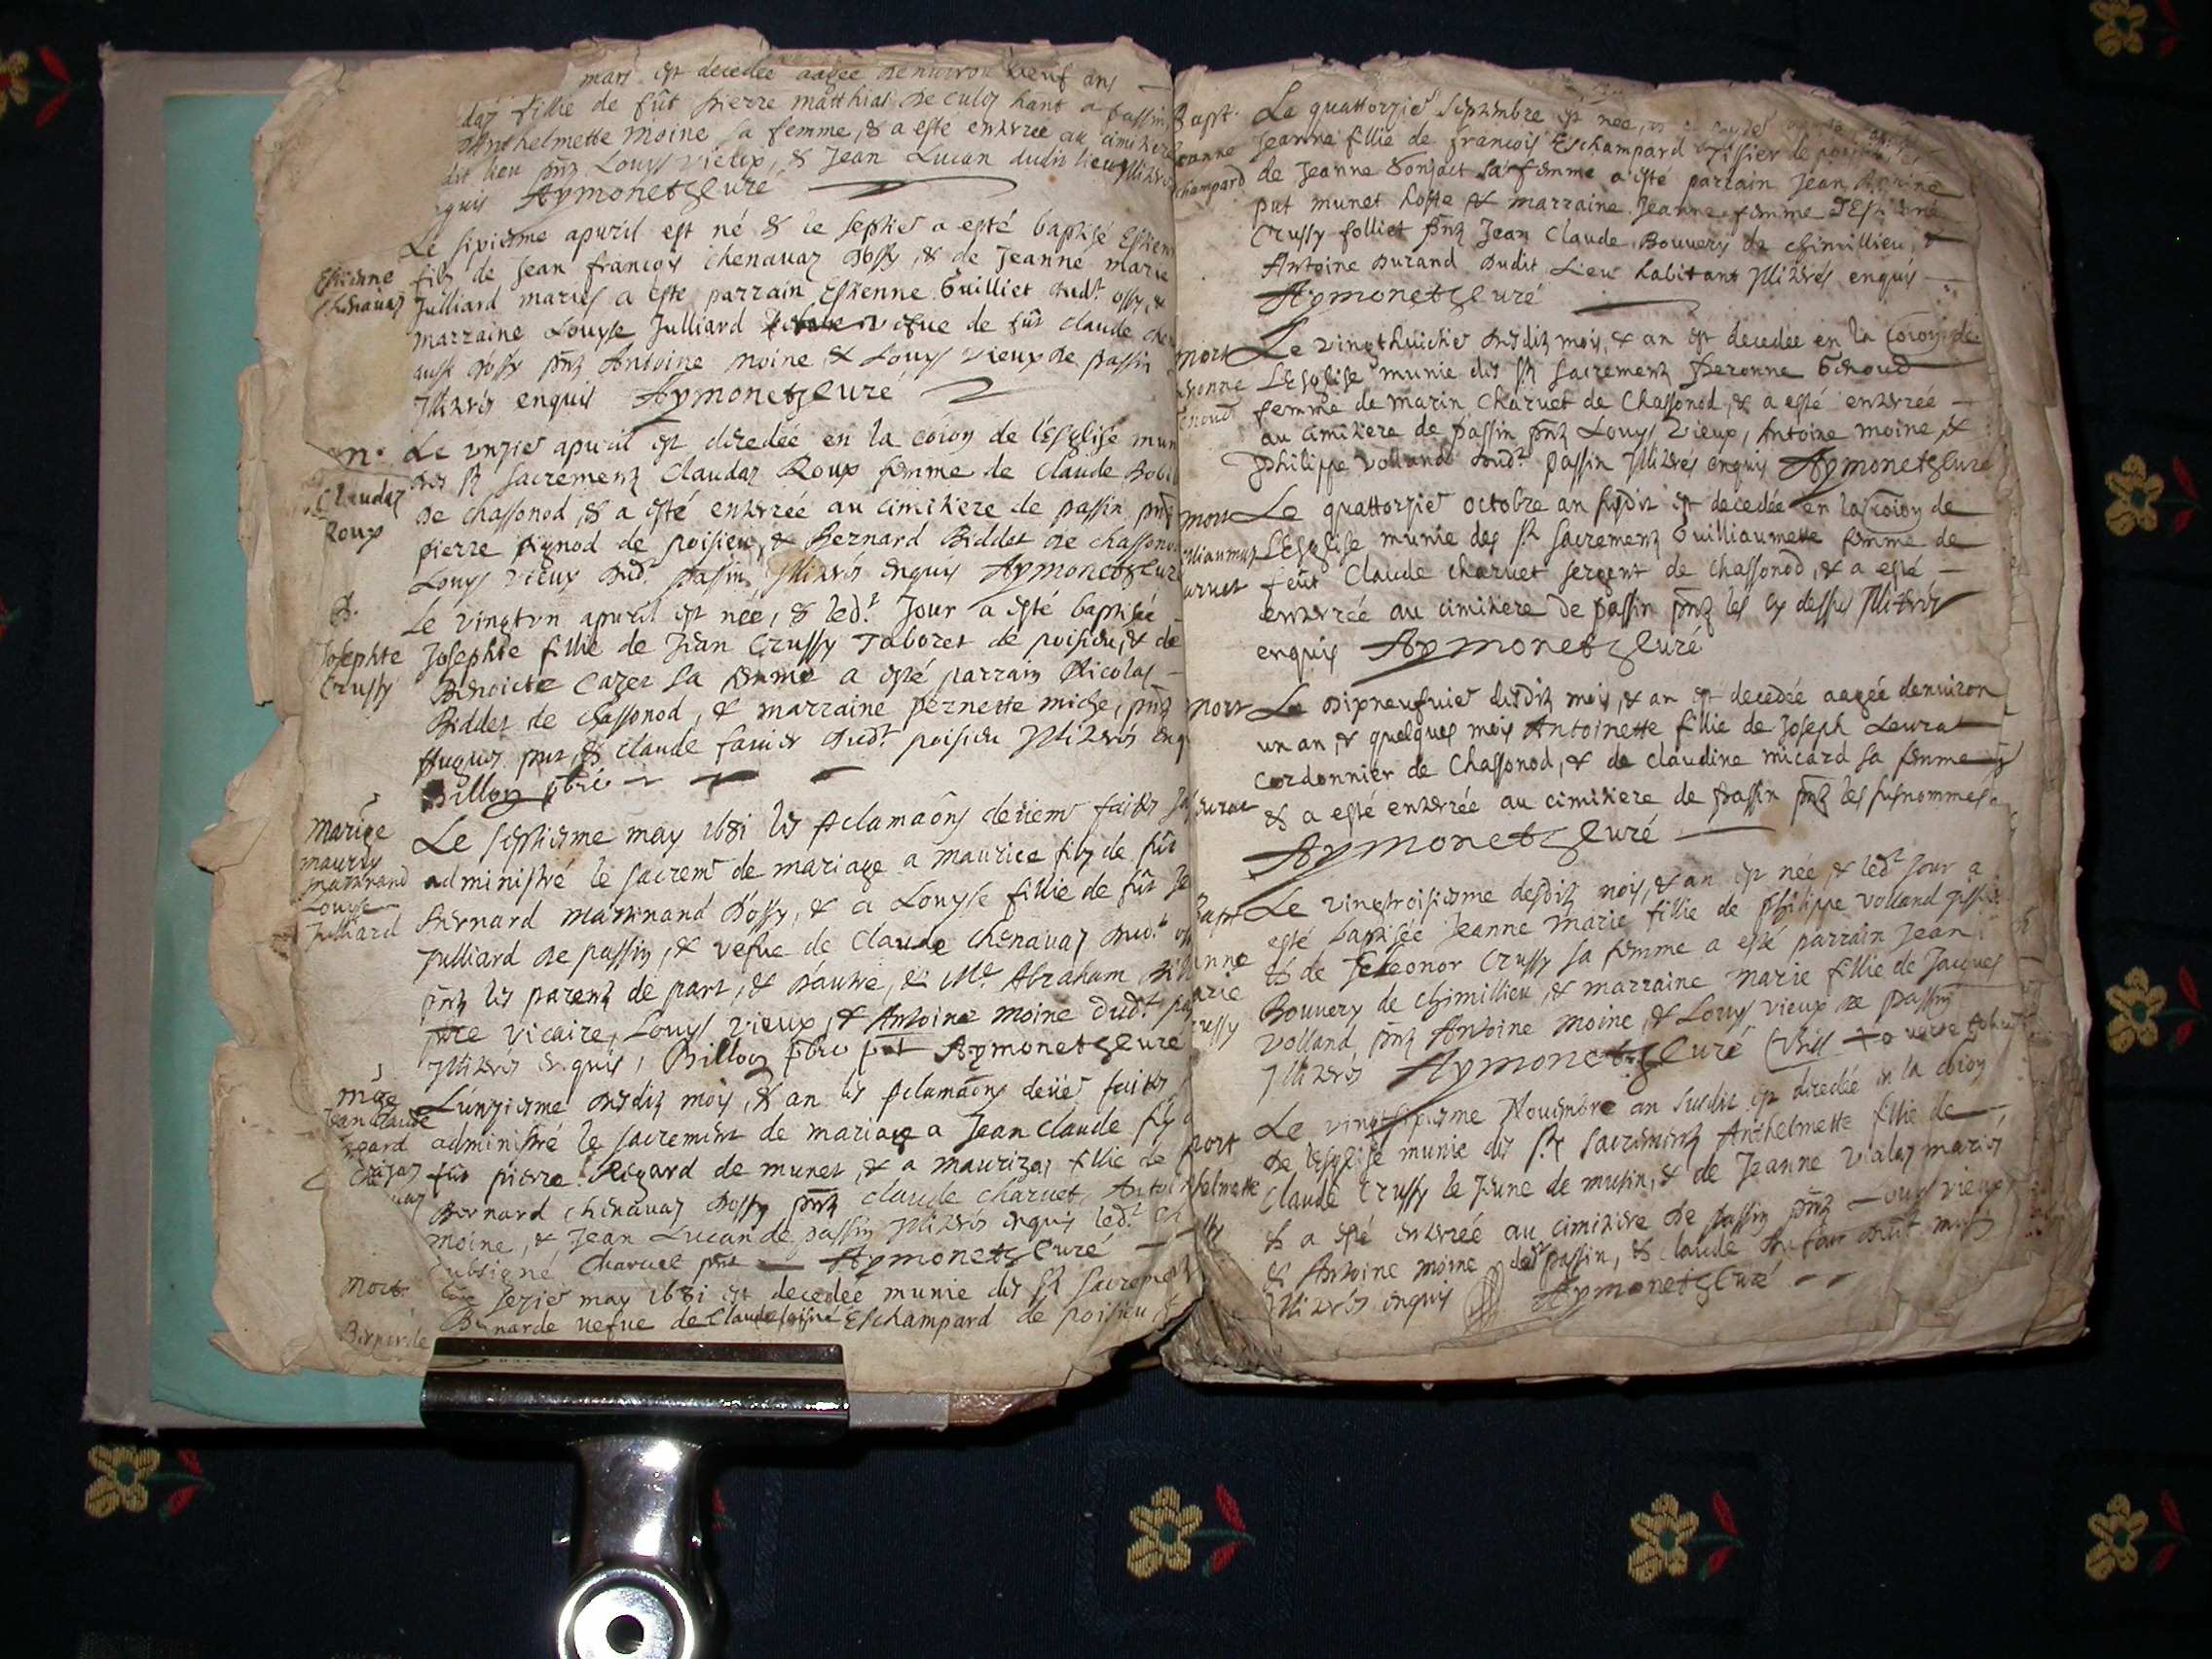 mars est decedée aagée denuiron neuf ans
fillie de fût pierre matthias de culoz hant a passin
Anthelmette moine sa femme, & a esté enterrée au cimitiere
dit lieu pñtz Louys vieux, & Jean Lucan dudit lieu Illitérés
enquis Aymonetz Curé
Le sixiesme apuril est né & le septie a esté baptisé Estien
Estienne Chenauaz
filz de Jean francois chenauaz dossy, & de Jeanne marie
Julliard mariés a este parrain Estienne Guilliet dudt ossy, &
marraine Louyse Julliard vefue de fût claude che
aussi dossy pñtz Antoine moine & Louys vieux de passin
Illitérés enquis Aymonetz Curé
Le unzie apuril est decedée en la coion de l'Esglise mun
Claudaz Roux
des st sacrementz Claudaz Roux femme de claude Bobi
de chassonod, & a esté enterrée au cimitiere de passin pñtz
pierre pignod de poisieu, & Bernard Biddet de chassonod
Louys vieux dudt passin Illitérés enquis Aymonetz Curé
B.
Le vingtvn apuril est née, & ledt Jour a esté baptisée
Josephte Crussy
Josephte fillie de Jean Crussy Taboret de poisieu, & de
Benoicte Cazet sa femme a esté parrain Nicolas
Biddet de chassonod, & marraine pernette miche, pñtz
Hugues put, & claude fauier dudt poisieu Illitérés enq
Billon pbre
Marige
maurix martinand Louyse Julliard
Le septiesme may 1681 les pclamaõns deüem faites
administré le sacremt de mariage a maurice filz de fût
Bernard martinand d'ossy, & a Louyse fillie de fût Je
Julliard de passin, & vefue de Claude chenauaz dudt
pñtz les parentz de part, & d'autre, & Me Abraham Bill
pre vicaire, Louys vieux, & Antoine moine dudt pas
Illitérés enquis, Billon pbre pñt Aymonetz Curé
mge
Jean Claude
L'unziesme dudit mois, & an les pclamaõns deües faites
administré le sacrement de mariage a Jean claude filz
fût pierre Rigard de munet, & a maurizaz fillie de
Bernard chenauaz dossy pñtz claude charuet, Antoi
moine, & Jean Lucan de passin Illitérés enquis ledt Ch
subsigné, Charuet pñt Aymonetz Curé
Mort
Bernarde
Le sezie may 1681 est decedée munie des st sacrement
Bernarde vefue de Claude Eschampard de poisieu &
Bapt.
Le quattorzie septembre est née
Jeanne fillie de francois Eschampard Tissier de poisieu
de Jeanne Gonjact sa femme a esté parrain Jean
put munet hoste & marraine Jeanne femme d'Estienne
Crussy folliet pñtz Jean Claude Bouuery de chimillieu, &
Antoine Durand dudit Lieu habitant Illitérés enquis
Aymonetz Curé
mort
Le vingthuictie dudit mois, & an est decedée en la coion de
L'Esglise munie des st sacrement peronne Genoud
femme de marin charuet de Chassonod, & a esté enterrée
au cimitiere de passin pñtz Louys vieux, Antoine moine &
philippe volland dudt passin Illitérés enquis Aymonetz Curé
mort
Le quattorzie octobre an susdit est decedée en la coion de
L'Esglise munie des st sacrement Guilliaumette femme de
feût Claude charuet sergent de chassonod, & a esté
enterrée au cimitiere de passin pñtz les cy dessus Illitérés
enquis Aymonetz Curé
mort
Le dixneufuie dudit mois, & an est decedée aagée denuiron
un an, & quelques mois Antoinette fillie de Joseph Leurat
cordonnier de Chassonod, & de claudine micard sa femme
& a esté enterrée au cimitiere de passin pñtz les susnommes
Aymonetz Curé
Bapt
Le vingtroisiesme dudit mois, & an est née, & ledt Jour a
esté baptisée Jeanne marie fillie de philippe volland
& de Eleonor Crussy sa femme a esté parrain Jean
Bouuery de chimillieu, & marraine marie fillie de Jacques
volland, pñtz Antoine moine, & Louys vieux de passin
Illitérés Aymonetz Curé
mort
Le vingtsixiesme Nouembre an susdit est decedée en la coion
de lesglise munie des st sacrementz Anthelmette fillie de
Claude Crussy le Jeune de musin, & de Jeanne vialaz mariés
& a esté enterrée au cimitiere de passin pñtz Louys vieux
& Antoine moine dudt passin, & claude du four dudit musin
Illitérés enquis Aymonetz Curé